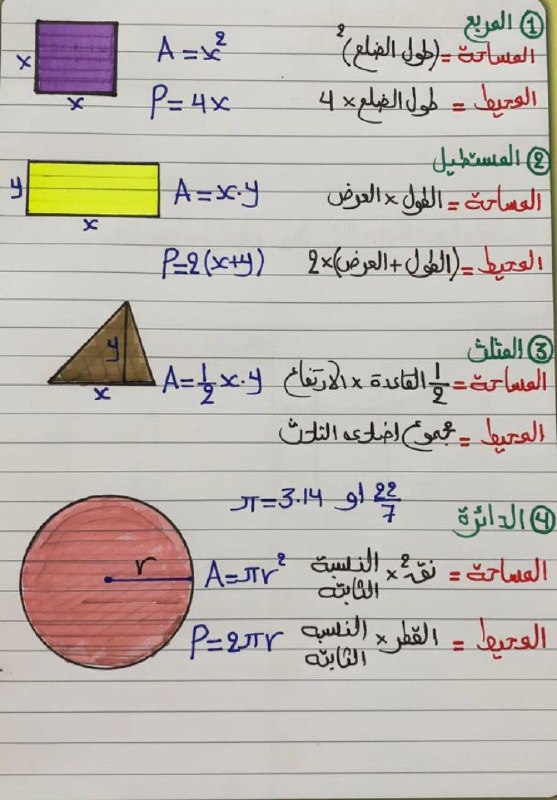 ① المربع
المساحة = (طول الضلع)² A = x²
المحيط = طول الضلع × 4 P = 4x
x
x
② المستطيل
المساحة = الطول × العرض A = x.y
المحيط = (الطول + العرض) × 2 P = 2(x+y)
y
x
③ المثلث
المساحة = 1/2 القاعدة × الارتفاع A = 1/2 x.y
المحيط = مجموع اضلاعه الثلاث
y
x
④ الدائرة
π = 3.14 او 22/7
المساحة = نق² × النسبة الثابته A = πr²
المحيط = القطر × النسبه الثابته P = 2πr
r